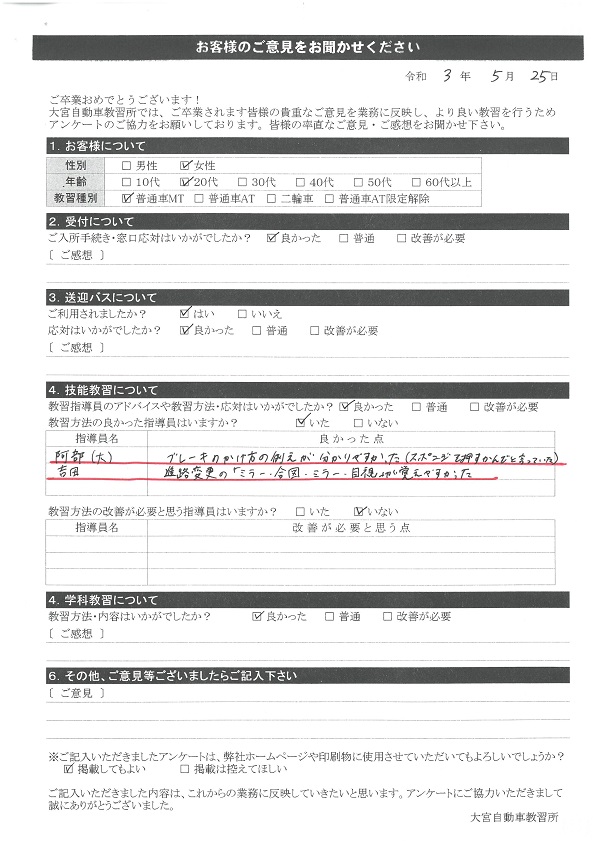 お客様のご意見をお聞かせください
令和 3 年 5 月 25 日
ご卒業おめでとうございます！
大宮自動車教習所では、ご卒業されます皆様の貴重なご意見を業務に反映し、より良い教習を行うため
アンケートのご協力をお願いしております。皆様の率直なご意見・ご感想をお聞かせ下さい。
1. お客様について
性別 □ 男性 ☑ 女性
年齢 □ 10代 ☑ 20代 □ 30代 □ 40代 □ 50代 □ 60代以上
教習種別 ☑ 普通車MT □ 普通車AT □ 二輪車 □ 普通車AT限定解除
2. 受付について
ご入所手続き・窓口応対はいかがでしたか？ ☑ 良かった □ 普通 □ 改善が必要
〔 ご感想 〕
3. 送迎バスについて
ご利用されましたか？ ☑ はい □ いいえ
応対はいかがでしたか？ ☑ 良かった □ 普通 □ 改善が必要
〔 ご感想 〕
4. 技能教習について
教習指導員のアドバイスや教習方法・応対はいかがでしたか？ ☑ 良かった □ 普通 □ 改善が必要
教習方法の良かった指導員はいますか？ ☑ いた □ いない
指導員名 良かった点
阿部(大) ブレーキのかけ方の例えが分かりやすかった(スポンジで押すかんじと言っていた)
吉田 進路変更の「ミラー・合図・ミラー・目視」が覚えやすかった
教習方法の改善が必要と思う指導員はいますか？ □ いた ☑ いない
指導員名 改善が必要と思う点
4. 学科教習について
教習方法・内容はいかがでしたか？ ☑ 良かった □ 普通 □ 改善が必要
〔 ご感想 〕
6. その他、ご意見等ございましたらご記入下さい
〔 ご意見 〕
※ご記入いただきましたアンケートは、弊社ホームページや印刷物に使用させていただいてもよろしいでしょうか？
☑ 掲載してもよい □ 掲載は控えてほしい
ご記入いただきました内容は、これからの業務に反映していきたいと思います。アンケートにご協力いただきまして
誠にありがとうございました。
大宮自動車教習所